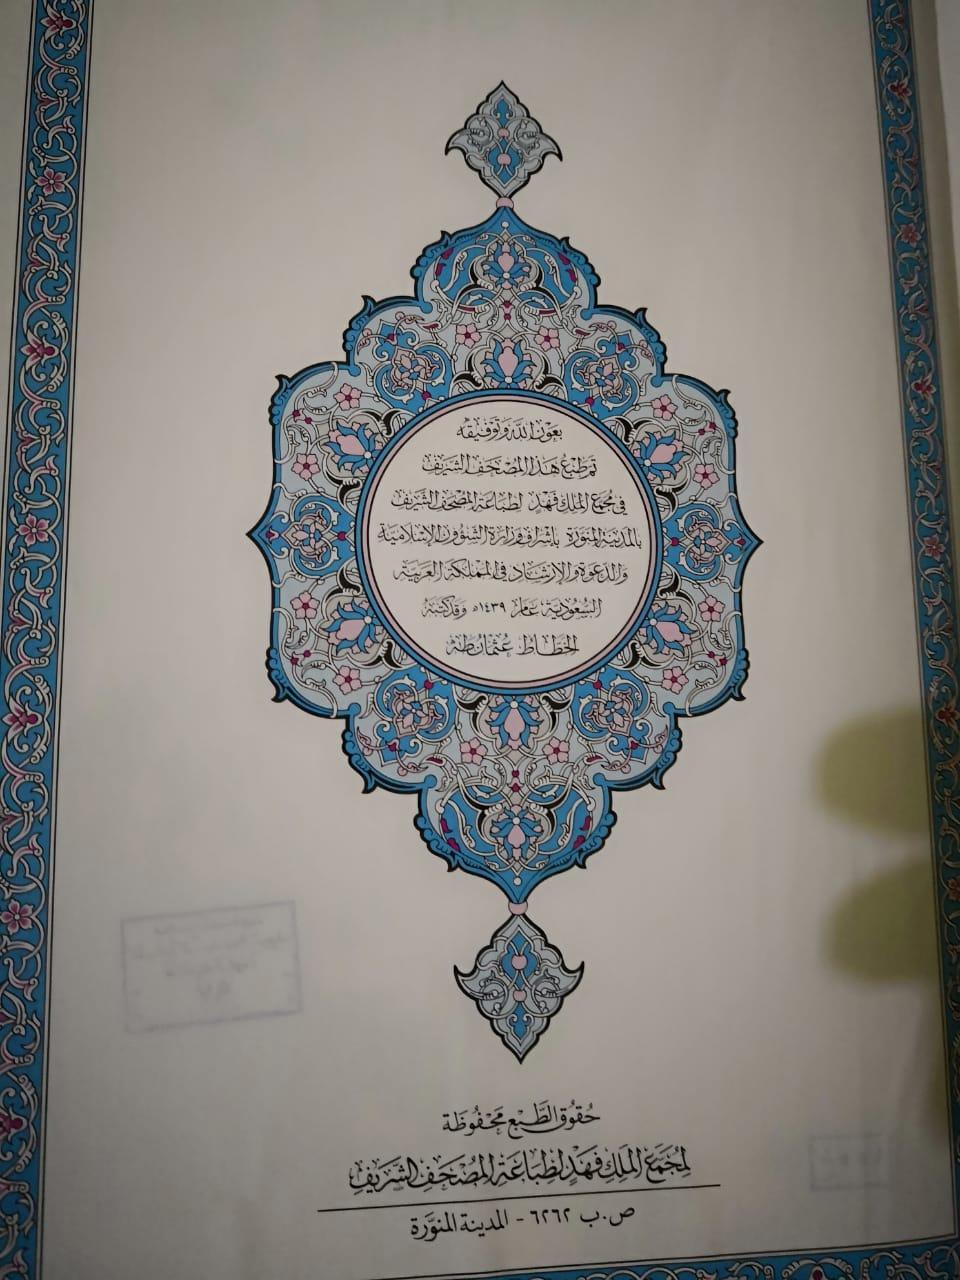 بعون الله وتوفيقه
تم طبع هذا المصحف الشريف
في مجمع الملك فهد لطباعة المصحف الشريف
بالمدينة المنورة بإشراف وزارة الشؤون الإسلامية
والدعوة والإرشاد في المملكة العربية
السعودية عام ١٤٣٩ه وقد كتبه
الخطاط عثمان طه
حُقُوق الطَّبع مَحْفُوظَة
لِمُجَمَّع المَلِك فَهَد لِطِبَاعَةِ المُصْحَفِ الشَّرِيفِ
ص.ب ٦٢٦٢ - المدينة المنوَّرة